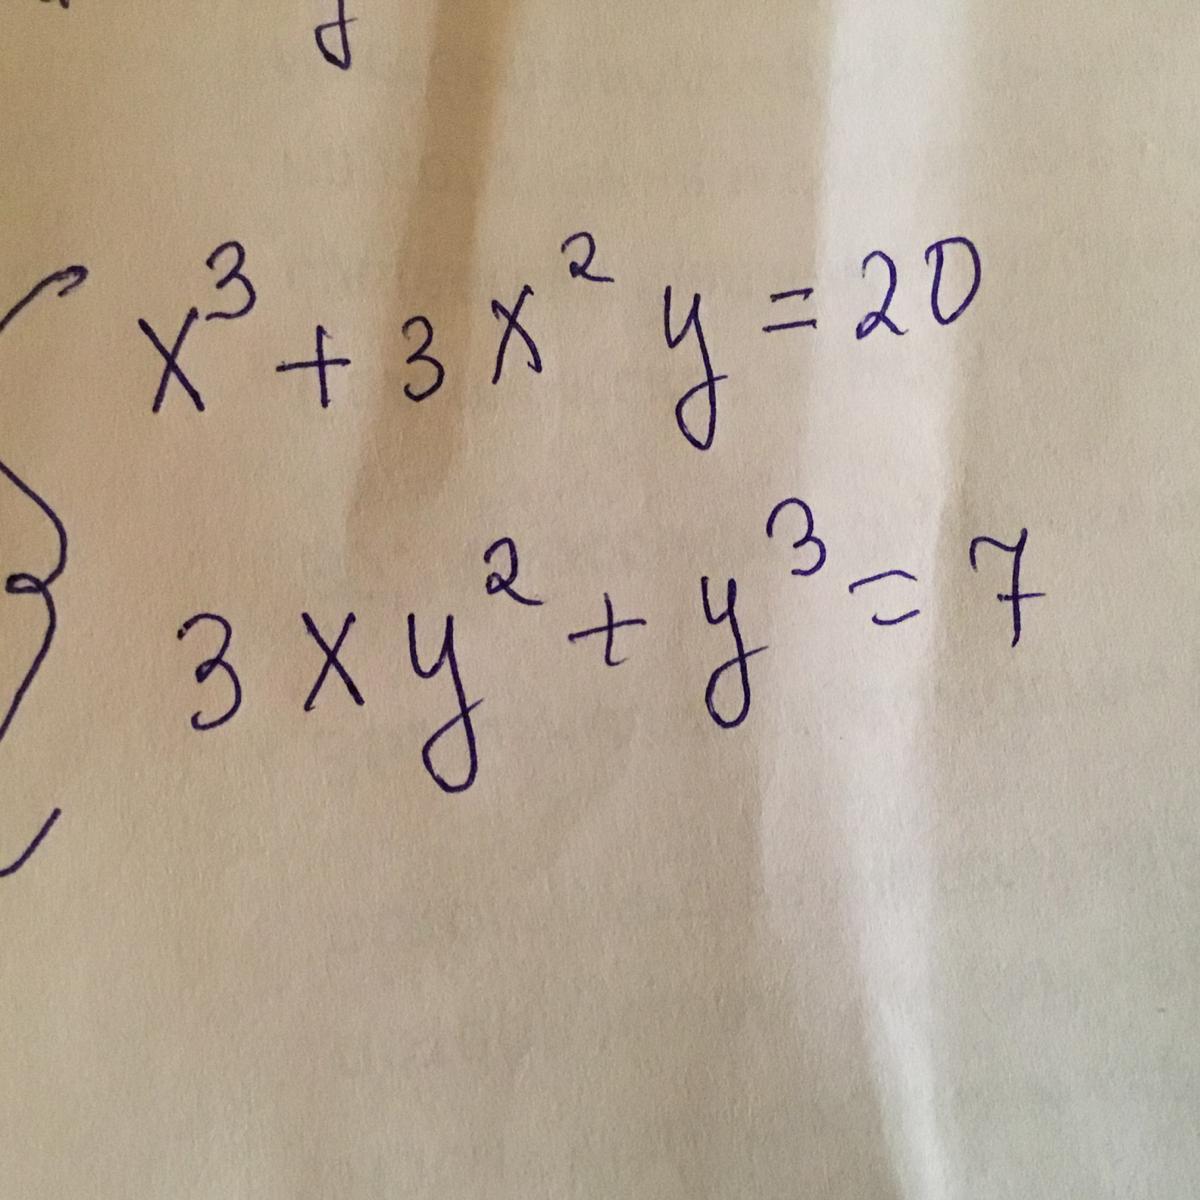 x³ + 3x²y = 20
3xy² + y³ = 7